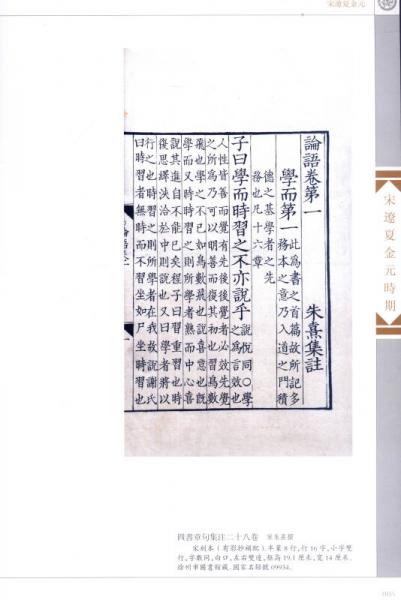 宋遼夏金元
論語卷第一 朱熹集註
學而第一 此為書之首篇故所記多
務本之意乃入道之門積
德之基學者之先
務也凡十六章
子曰學而時習之不亦說乎 說悅同○學
之為言效也
人性皆善而覺有先後後覺者必效先覺
之所為乃可以明善而復其初也習鳥數
飛也學之不已如鳥數飛也說喜意也既
學而又時時習之則所學者熟而中心喜
說其進自不能已矣程子曰習重習也時
復思繹浹洽於中則說也又曰學者將以
行之也時習之則所學者在我故說謝氏
曰時習者無時而不習坐如尸坐時習也
宋遼夏金元時期
四書章句集注二十八卷 宋朱熹撰
宋刻本(有彩抄補配).半葉8行,行16字,小字雙
行,字數同,白口,左右雙邊,框高19.1厘米,寬14厘米.
徐州市圖書館藏.國家名錄號09934.